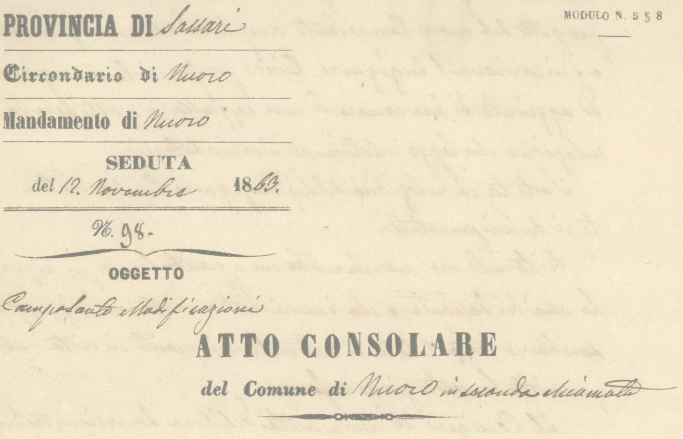 MODULO N. 5 § 8
PROVINCIA DI Sassari
Circondario di Nuoro
Mandamento di Nuoro
SEDUTA
del 12. Novembre 1863.
N. 98.
OGGETTO
Camposanto Modificazioni
ATTO CONSOLARE
del Comune di Nuoro in seconda chiamata